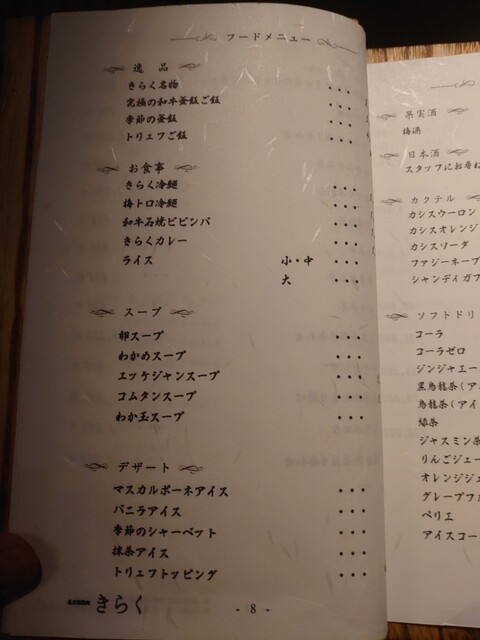 フードメニュー
逸品
きらく名物
究極の和牛釜飯ご飯
季節の釜飯
トリュフご飯
お食事
きらく冷麺
梅トロ冷麺
和牛石焼ビビンバ
きらくカレー
ライス 小・中
大
スープ
卵スープ
わかめスープ
ユッケジャンスープ
コムタンスープ
わか玉スープ
デザート
マスカルポーネアイス
バニラアイス
季節のシャーベット
抹茶アイス
トリュフトッピング
きらく
- 8 -
果実酒
梅酒
日本酒
スタッフにお尋ね
カクテル
カシスウーロン
カシスオレンジ
カシスソーダ
ファジーネーブ
シャンディガフ
ソフトドリ
コーラ
コーラゼロ
ジンジャエー
黒烏龍茶(アイ
烏龍茶(アイ
緑茶
ジャスミン茶
りんごジュー
オレンジジュ
グレープフル
ペリエ
アイスコー